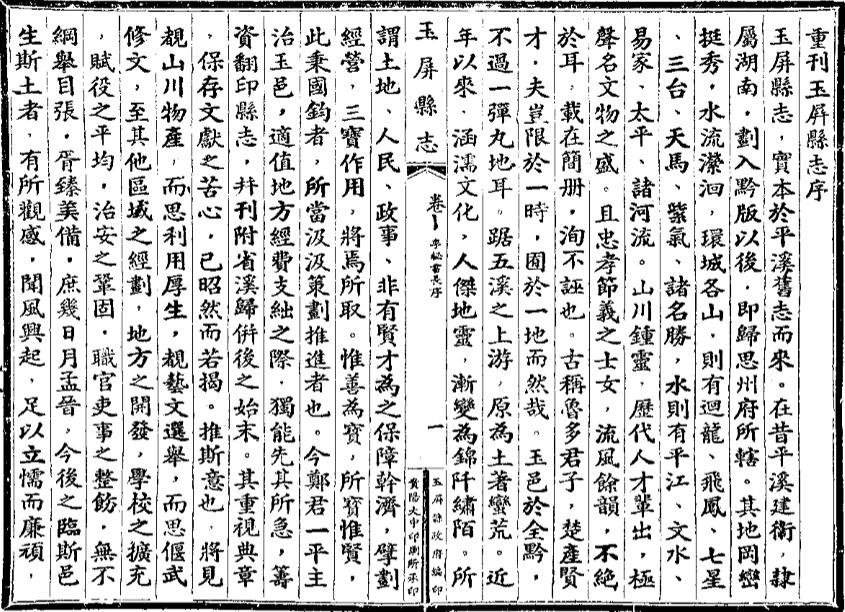 重刊玉屏縣志序
玉屏縣志，實本於平溪舊志而來。在昔平溪建衛，隸
屬湖南，劃入黔版以後，即歸思州府所轄。其地岡巒
挺秀，水流瀠洄，環城各山，則有迴龍、飛鳳、七星
、三台、天馬、紫氣、諸名勝，水則有平江、文水、
易家、太平、諸河流。山川鍾靈，歷代人才輩出，極
聲名文物之盛。且忠孝節義之士女，流風餘韻，不絕
於耳，載在簡冊，洵不誣也。古稱魯多君子，楚產賢
才，夫豈限於一時，囿於一地而然哉。玉邑於全黔，
不過一彈丸地耳。踞五溪之上游，原為土著蠻荒。近
年以來，涵濡文化，人傑地靈，漸變為錦阡繡陌。所
玉屏縣志
卷一
李祕書長序
一
玉屏縣政府編印
貴陽大中印刷所承印
謂土地、人民、政事、非有賢才為之保障幹濟，擘劃
經營，三寶作用，將焉所取。惟善為寶，所寶惟賢，
此秉國鈞者，所當汲汲策劃推進者也。今鄭君一平主
治玉邑，適值地方經費支絀之際，獨能先其所急，籌
資翻印縣志，幷刊附省溪歸併後之始末。其重視典章
、保存文獻之苦心，已昭然而若揭。推斯意也，將見
覩山川物產，而思利用厚生，覩藝文選舉，而思偃武
修文，至其他區域之經劃，地方之開發，學校之擴充
，賦役之平均，治安之鞏固，職官吏事之整飭，無不
綱舉目張，胥臻美備，庶幾日月孟晉，今後之臨斯邑
生斯土者，有所觀感，聞風興起，足以立懦而廉頑，